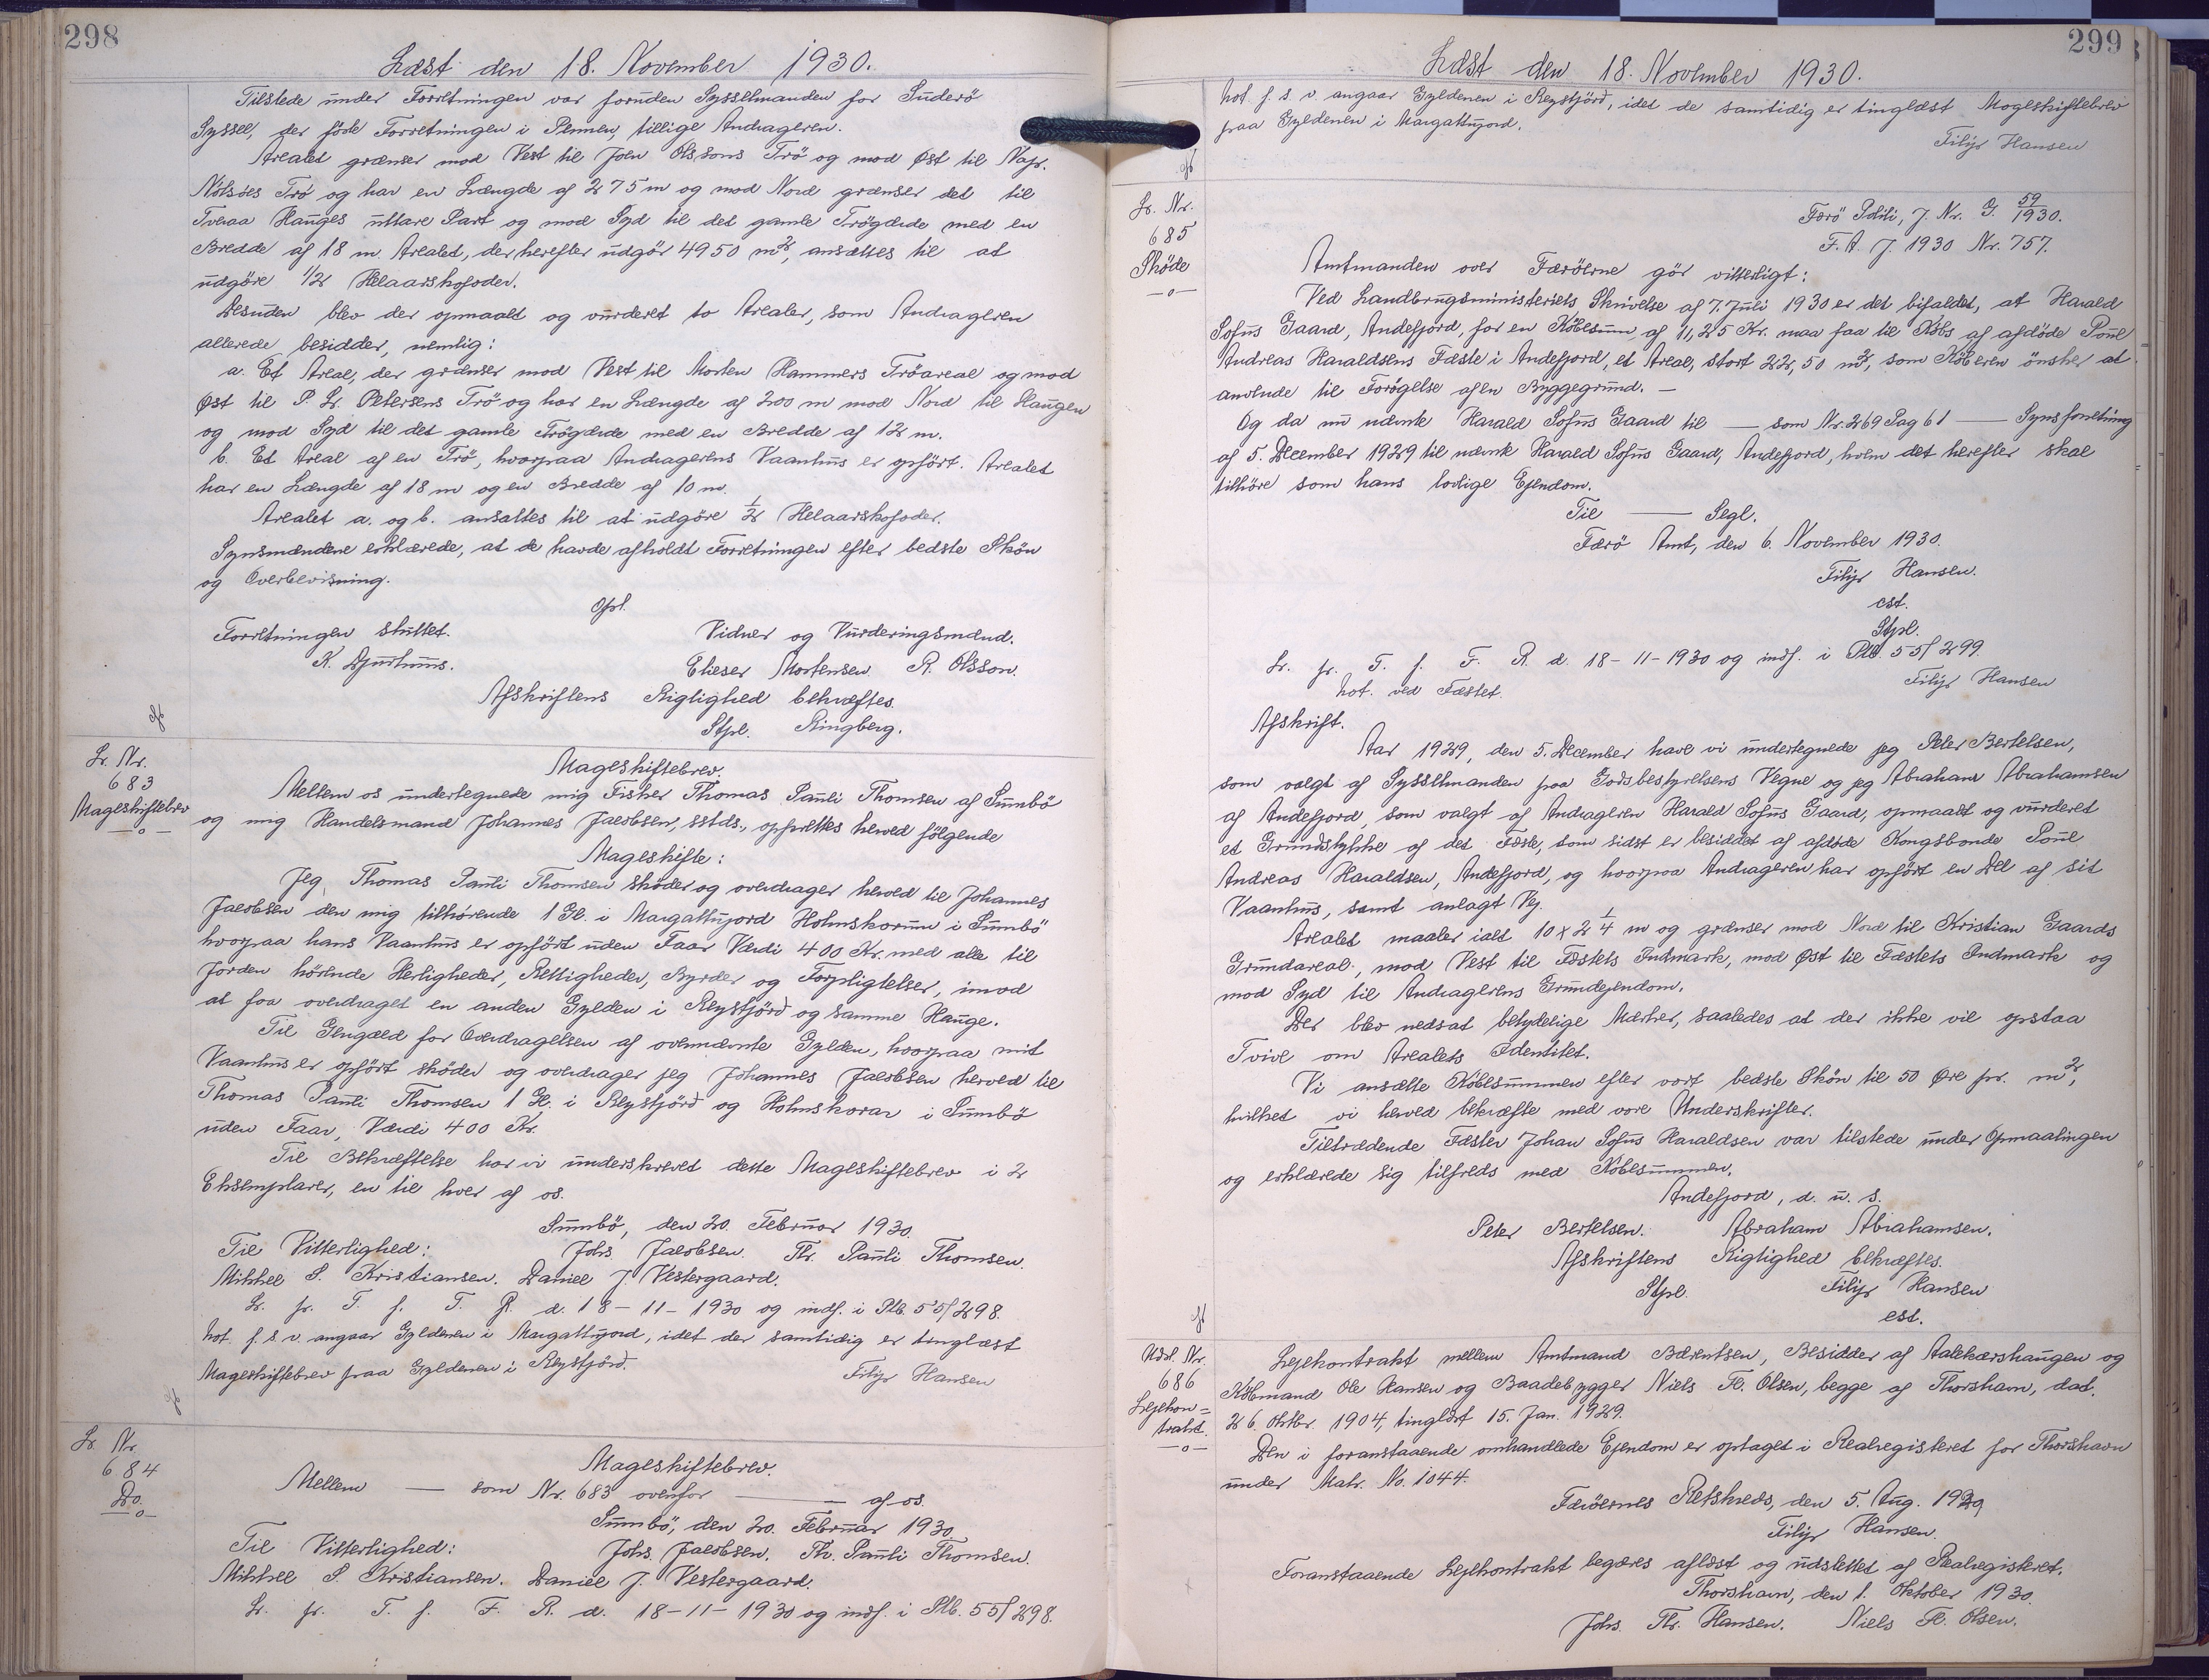 298
Læst den 18. November 1930.
Tilstede under Forretningen var foruden Sysselmanden for Suderö
Syssel, der förte Forretningen i Pennen, tillige Andrageren.
Arealet grænser mod Vest til Joen Olssons Trö og mod Øst til Napr.
Nólsöes Trö og har en Længde af 275 m og mod Nord grænser det til
Tveraa Hauges uttare Part og mod Syd til det gamle Trögærde med en
Bredde af 18 m. Arealet, der herefter udgör 4950 m², ansættes til at
udgöre 1/2 Helaarskofoder.
Desuden blev der opmaalt og vurderet to Arealer, som Andrageren
allerede besidder, nemlig:
a. Et Areal, der grænser mod Vest til Morten Hammers Tröareal og mod
Øst til P. Fr. Petersens Trö og har en Længde af 200 m mod Nord til Haugen
og mod Syd til det gamle Trögærde med en Bredde af 12 m.
b. Et Areal af en Trö, hvorpaa Andragerens Vaanhus er opfört. Arealet
har en Længde af 18 m og en Bredde af 10 m.
Arealet a. og b. ansættes til at udgöre 1/2 Helaarskofoder.
Synsmændene erklærede, at de havde afholdt Forretningen efter bedste Skön
og Overbevisning.
Opl.
Forretningen sluttet. Vidner og Vurderingsmænd.
K. Djurhuus. Elieser Mortensen R. Olsson.
Afskriftens Rigtighed bekræftes.
Stpl. Ringberg.
Lr. Nr.
683
Mageskiftebrev
—o—
Mageskiftebrev.
Mellem os undertegnede mig Fisker Thomas Pauli Thomsen af Sumbö
og mig Handelsmand Johannes Jacobsen, sstds., oprettes herved følgende
Mageskifte:
Jeg, Thomas Pauli Thomsen sköder og overdrager herved til Johannes
Jacobsen den mig tilhörende 1 Gl. i Margattujord Holmskorum i Sumbö
hvorpaa hans Vaanhus er opfört uden Faar Værdi 400 Kr. med alle til
Jorden hörende Herligheder, Rettigheder, Byrder og Forpligtelser, imod
at faa overdraget en anden Gylden i Reystfjörd og samme Hauge.
Til Gengæld for Overdragelsen af ovennævnte Gylden, hvorpaa mit
Vaanhus er opfört sköder og overdrager jeg Johannes Jacobsen herved til
Thomas Pauli Thomsen 1 Gl. i Reystfjörd og Holmskorar i Sumbö
uden Faar, Værdi 400 Kr.
Til Bekræftelse har vi underskrevet dette Mageskiftebrev i 2
Eksemplarer, en til hver af os.
Sumbö, den 20. Februar 1930.
Til Vitterlighed: Johs. Jacobsen. Th. Pauli Thomsen.
Mikkel S. Kristiansen. Daniel J. Vestergaard.
Lr. pr. T. f. F. R. d. 18-11-1930 og indf. i Plb. 55f 298.
Not. f. s. v. angaar Gyldenen i Margattujord, idet der samtidig er tinglæst
Mageskiftebrev paa Gyldenen i Reystfjörd.
Filip Hansen
Lr. Nr.
684
Do.
—o—
Mageskiftebrev.
Mellem — som Nr. 683 ovenfor — af os.
Sumbö, den 20. Februar 1930.
Til Vitterlighed: Johs. Jacobsen. Th. Pauli Thomsen.
Mikkel S. Kristiansen. Daniel J. Vestergaard.
Lr. pr. T. f. F. R. d. 18-11-1930 og indf. i Plb. 55f 298.
299
Læst den 18. November 1930.
Not. f. s. v. angaar Gyldenen i Reystfjörd, idet de samtidig er tinglæst Mageskiftebrev
paa Gyldenen i Margattujord.
Filip Hansen
Lr. Nr.
685
Sköde
—o—
Færö Politi, J. Nr. G. 59/1930.
F. A. J. 1930 Nr. 757.
Amtmanden over Færöerne gör vitterligt:
Ved Landbrugsministeriets Skrivelse af 7. Juli 1930 er det bifaldet, at Harald
Sofus Gaard, Andefjord, for en Köbesum af 11,25 Kr. maa faa til Köbs af afdöde Poul
Andreas Haraldsens Fæste i Andefjord, et Areal, stort 22,50 m², som Köberen önsker at
anvende til Forögelse af en Byggegrund. —
Og da nu nævnte Harald Sofus Gaard til — som Nr. 269 Pag 61 — Synsforretning
af 5. December 1929 til nævnte Harald Sofus Gaard, Andefjord, hvem det herefter skal
tilhöre som hans lovlige Ejendom.
Til — Segl.
Færö Amt, den 6. November 1930.
Filip Hansen.
cst.
Stpl.
Lr. pr. T. f. F. R. d. 18-11-1930 og indf. i Plb. 55f 299.
Not. ved Fæstet. Filip Hansen
Afskrift.
Aar 1929, den 5. December have vi undertegnede jeg Peter Bertelsen,
som valgt af Sysselmanden paa Godsbestyrelsens Vegne og jeg Abraham Abrahamsen
af Andefjord, som valgt af Andrageren Harald Sofus Gaard, opmaalt og vurderet
et Grundstykke af det Fæste, som sidst er besiddet af afdøde Kongsbonde Poul
Andreas Haraldsen, Andefjord, og hvorpaa Andrageren har opfört en Del af sit
Vaanhus, samt anlagt Vej.
Arealet maaler ialt 10 x 2 1/4 m og grænser mod Nord til Kristian Gaards
Grundareal, mod Vest til Fæstets Indmark, mod Øst til Fæstets Indmark og
mod Syd til Andragerens Grundejendom.
Der blev nedsat betydelige Mærker, saaledes at der ikke vil opstaa
Tvivl om Arealets Identitet.
Vi ansætte Köbesummen efter vort bedste Skön til 50 Øre pr. m²,
hvilket vi herved bekræfte med vore Underskrifter.
Tiltrædende Fæster Johan Sofus Haraldsen var tilstede under Opmaalingen
og erklærede sig tilfreds med Köbesummen.
Andefjord, d. u. s.
Peter Bertelsen. Abraham Abrahamsen.
Afskriftens Rigtighed bekræftes.
Stpl. Filip Hansen
cst.
Udsl. Nr.
686
Lejekon=
trakt.
—o—
Lejekontrakt mellem Amtmand Bærentsen, Besidder af Aalekærshaugen og
Købmand Ole Hansen og Baadebygger Niels Fl. Olsen, begge af Thorshavn, dat.
26. Oktbr. 1904, tinglæst 15. Jan. 1929.
Den i foranstaaende omhandlede Ejendom er optaget i Realregisteret for Thorshavn
under Matr. No. 1044.
Færöernes Retskreds, den 5. Aug. 1929
Filip Hansen.
Foranstaaende Lejekontrakt begæres aflæst og udslettet af Realregistret.
Thorshavn, den 1. Oktober 1930.
Johs. Th. Hansen. Niels Fl. Olsen.